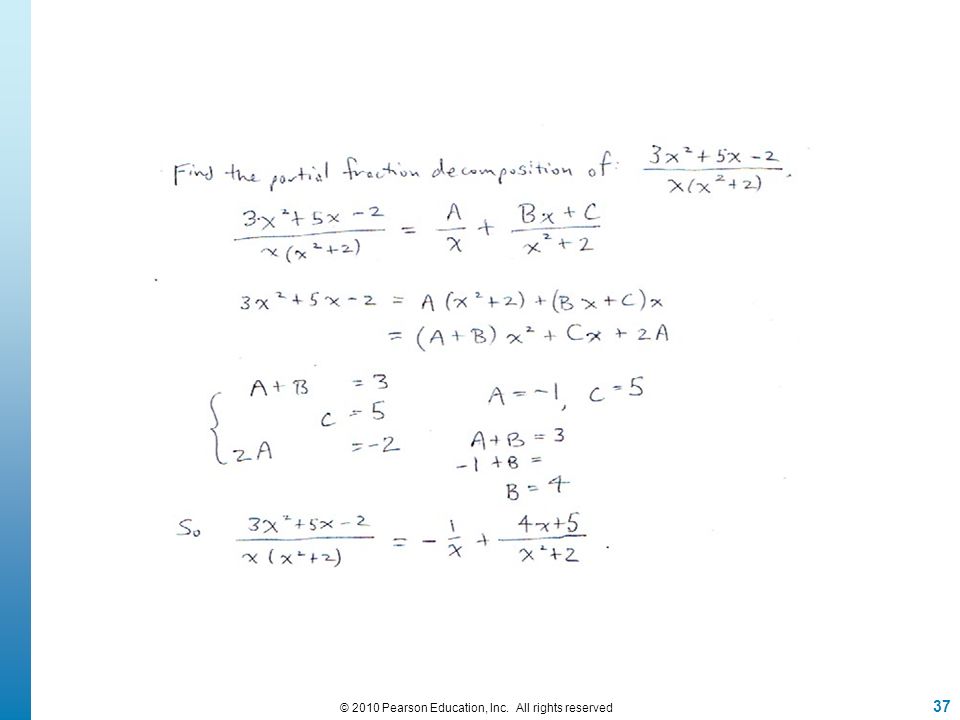 Find the partial fraction decomposition of: (3x²+5x-2)/(x(x²+2)).
(3x²+5x-2)/(x(x²+2)) = A/x + (Bx+C)/(x²+2)
3x²+5x-2 = A(x²+2)+(Bx+C)x
= (A+B)x² + Cx + 2A
A+B = 3
C = 5
2A = -2
A=-1, C=5
A+B = 3
-1+B =
B=4
So (3x²+5x-2)/(x(x²+2)) = -1/x + (4x+5)/(x²+2).
© 2010 Pearson Education, Inc. All rights reserved
37